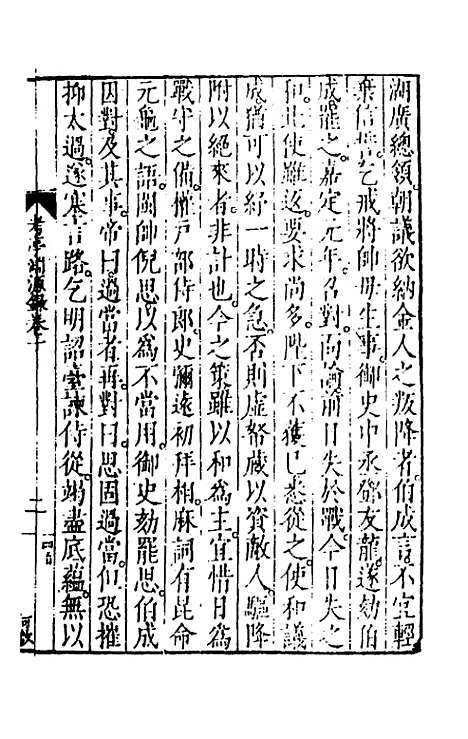 湖廣總領朝議欲納金人之叛降者伯成言不宜輕
棄信誓乞戒將帥毋生事御史中丞鄧友龍遂劾伯
成罷之嘉定元年召對向諭前日失於戰今日失之
和此使雖返要求尚多陛下不獲已悉從之使和議
成猶可以紓一時之急否則虛帑藏以資敵人驅降
附以絕來者非計也今之策雖以和為主宜惜日為
戰守之備權戶部侍郎史彌遠初拜相麻詞有昆命
元龜之語閩帥倪思以為不當用御史劾罷思伯成
因對及其事帝曰過當者再對曰思固過當但恐摧
抑太過遂塞言路乞明詔臺諫侍從竭盡底蘊無以
考亭淵源錄卷二